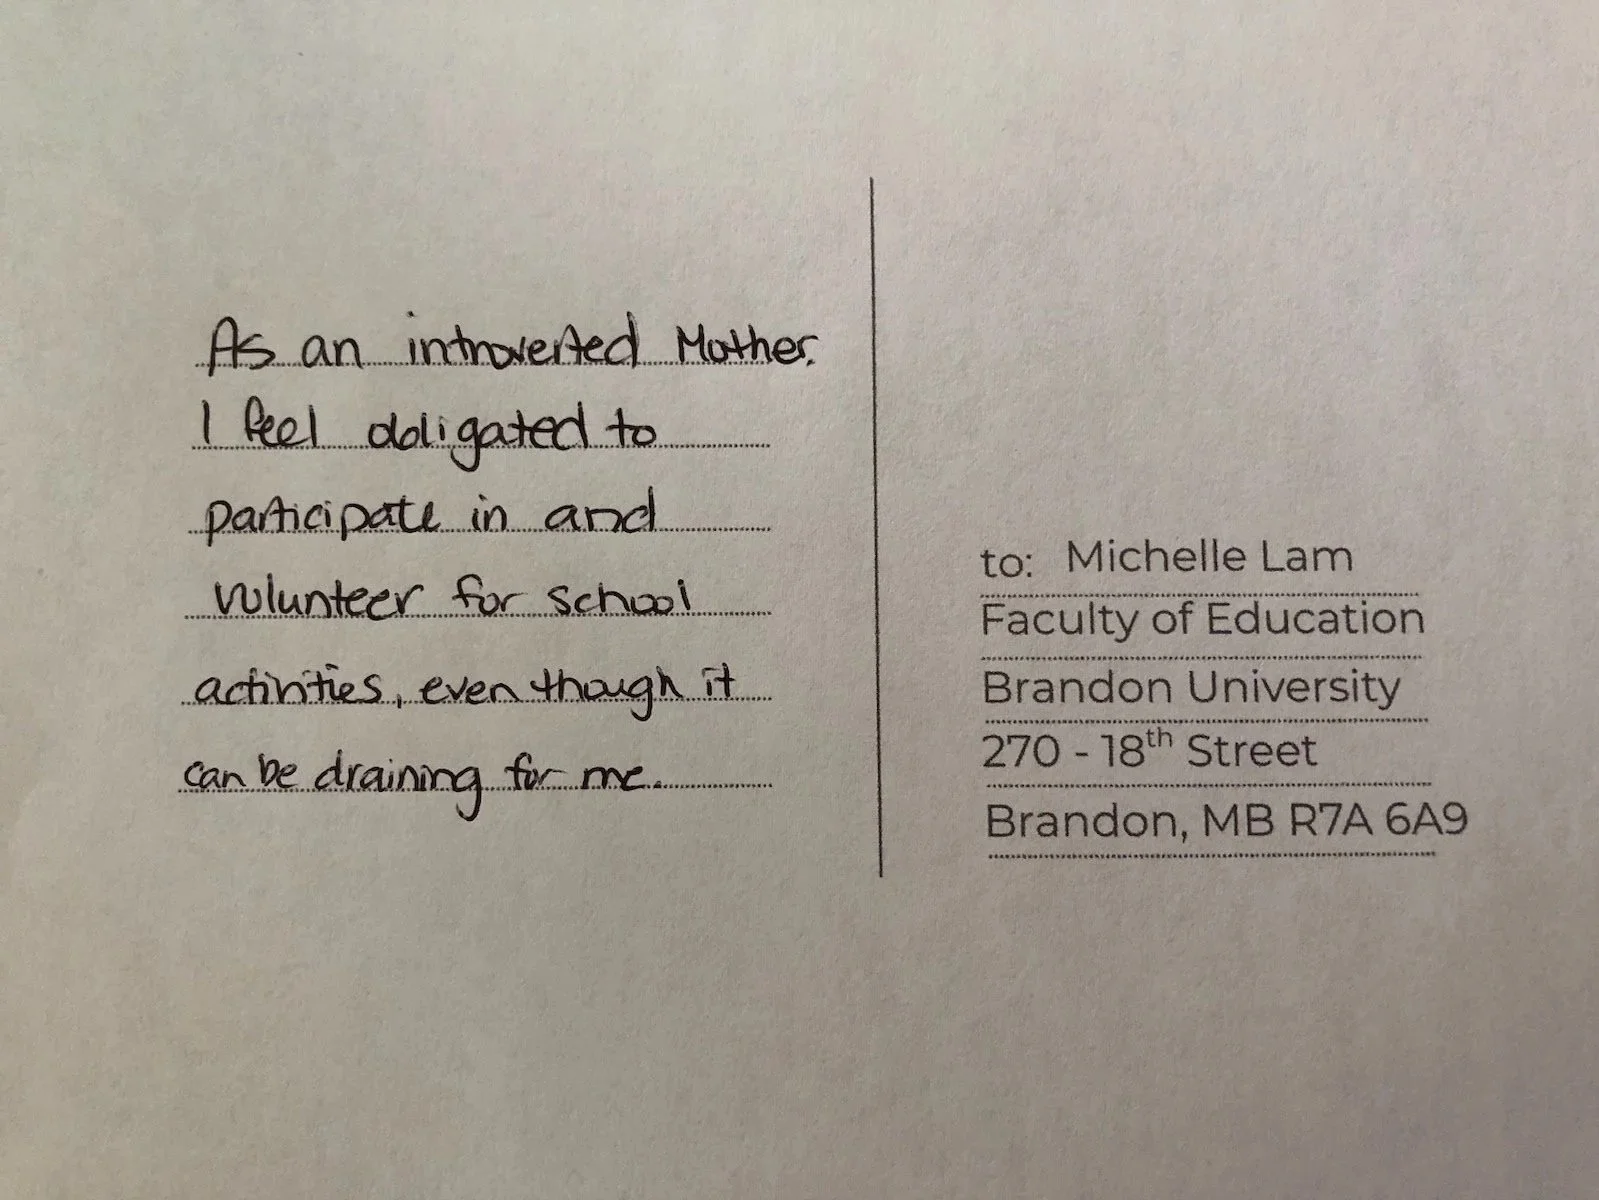 As an introverted Mother.
I feel obligated to
participate in and
volunteer for school
activities, even though it
can be draining for me.
to: Michelle Lam
Faculty of Education
Brandon University
270 - 18th Street
Brandon, MB R7A 6A9